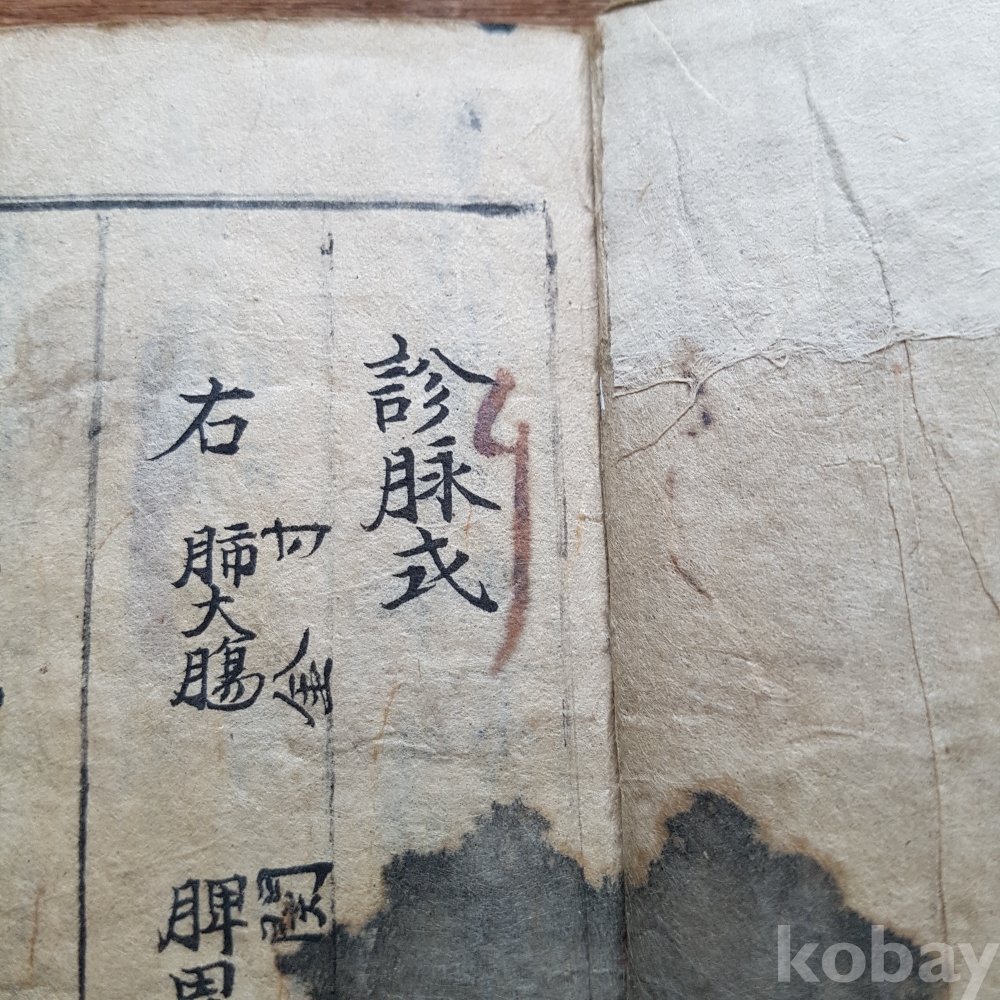 診脉式
右
肺大腸
寸
脾胃
kobay